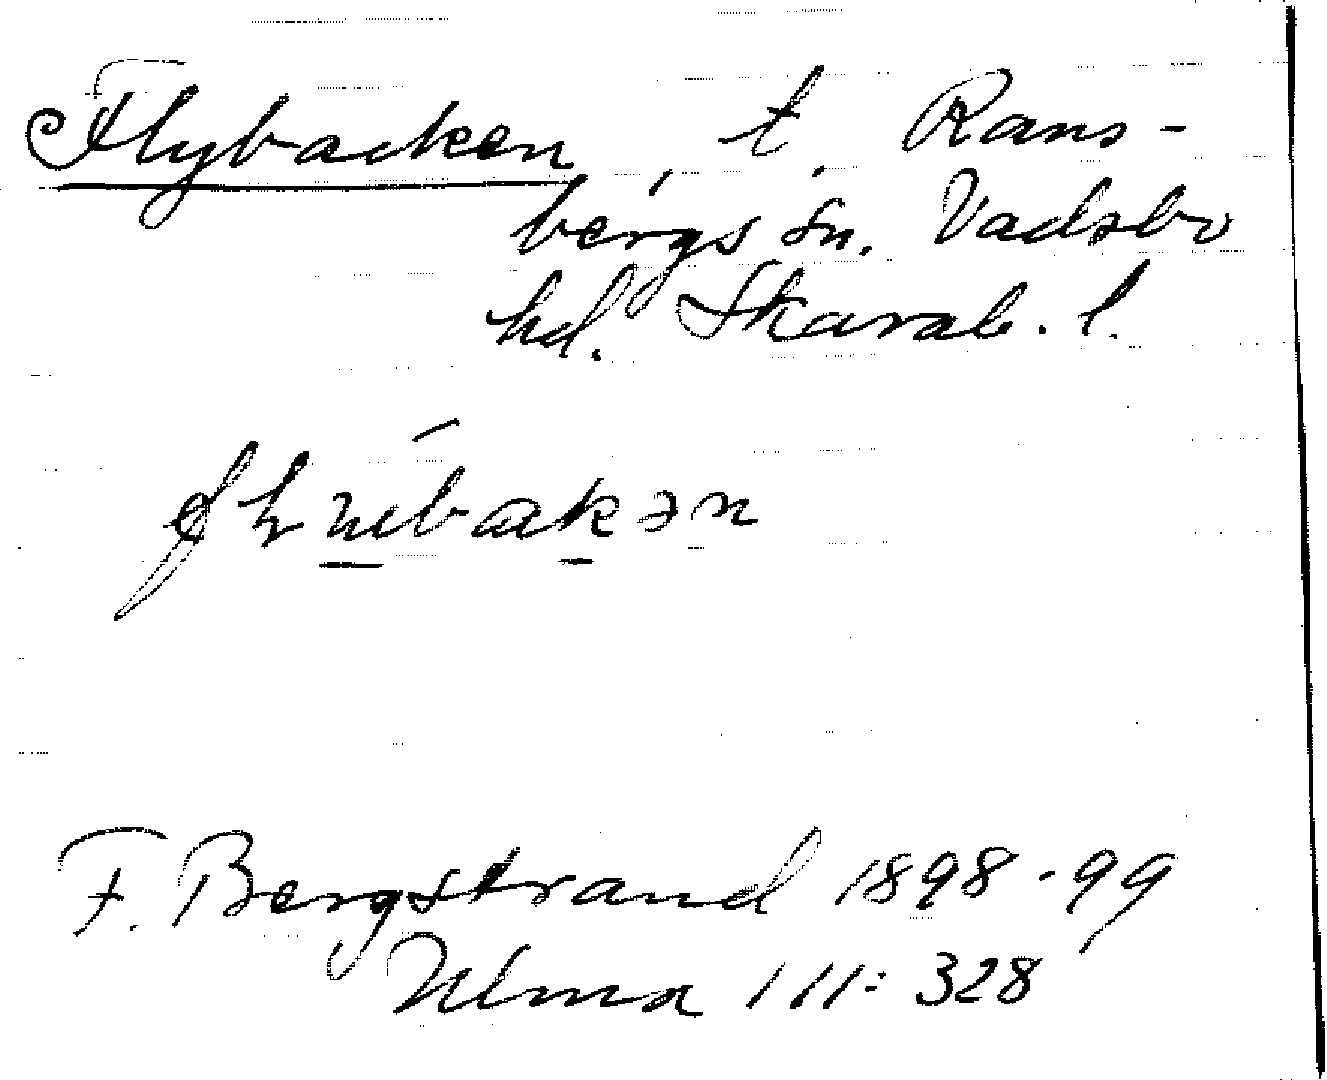 Flybacken, t. Rans-
bergs sn. Vadsbo
hd. Skarab. l.
F. Bergstrand 1898-99
Ulma 111:328